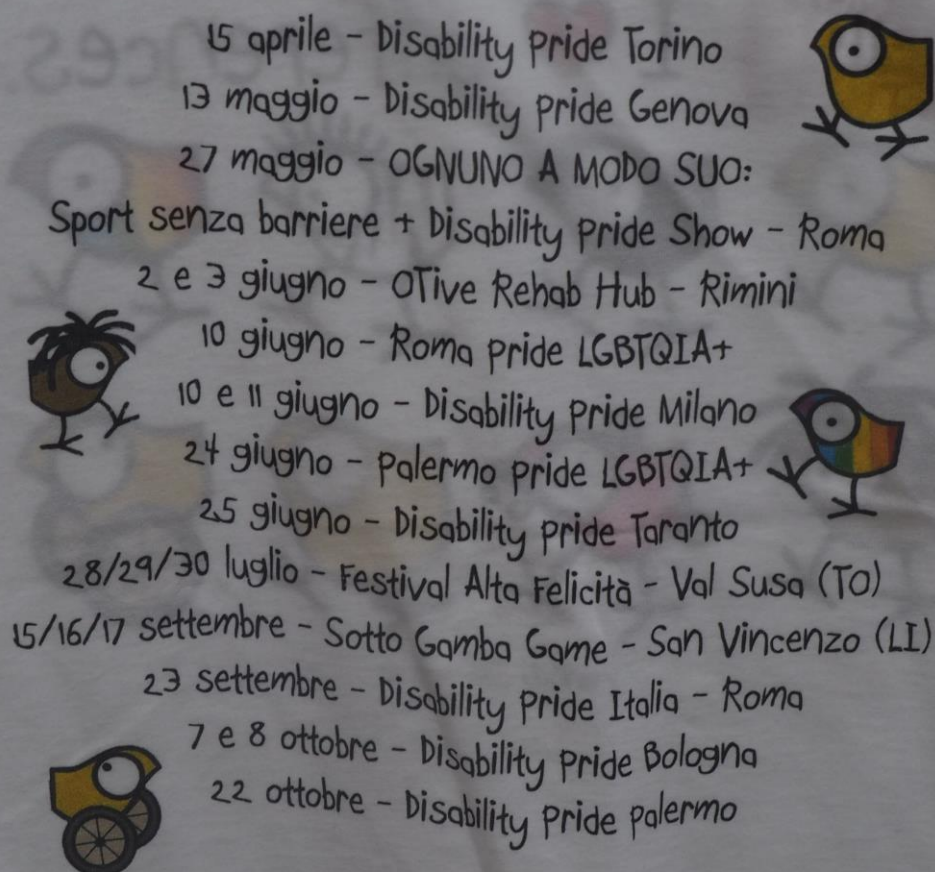 15 aprile - Disability Pride Torino
13 maggio - Disability Pride Genova
27 maggio - OGNUNO A MODO SUO:
Sport senza barriere + Disability Pride Show - Roma
2 e 3 giugno - OTive Rehab Hub - Rimini
10 giugno - Roma Pride LGBTQIA+
10 e 11 giugno - Disability Pride Milano
24 giugno - Palermo Pride LGBTQIA+
25 giugno - Disability Pride Taranto
28/29/30 luglio - Festival Alta Felicità - Val Susa (TO)
15/16/17 settembre - Sotto Gamba Game - San Vincenzo (LI)
23 settembre - Disability Pride Italia - Roma
7 e 8 ottobre - Disability Pride Bologna
22 ottobre - Disability Pride Palermo